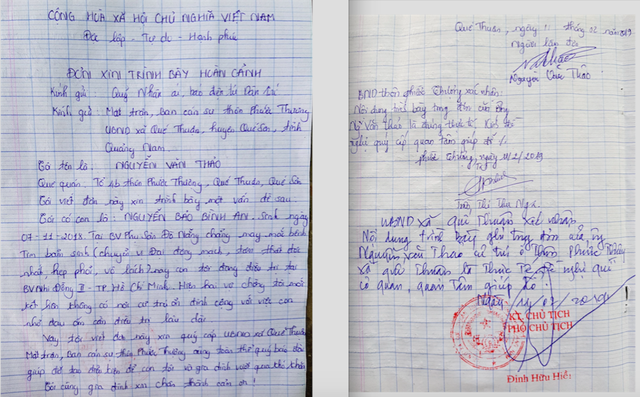 CỘNG HOÀ XÃ HỘI CHỦ NGHĨA VIỆT NAM
Độc lập - Tự do - Hạnh phúc
ĐƠN XIN TRÌNH BÀY HOÀN CẢNH
Kính gửi: Quý Nhân ái, báo điện tử Dân trí
Kính gửi: Mặt trận, ban cán sự thôn Phước Thượng
UBND xã Quế Thuận, huyện Quế Sơn, tỉnh
Quảng Nam.
Tôi tên là: NGUYỄN VĂN THẢO
Quê quán: Tổ thôn Phước Thượng, Quế Thuận, Quế Sơn
Tôi viết đơn này xin trình bày một vấn đề sau:
Tôi có con là: NGUYỄN BẢO BÌNH AN. Sinh ngày
07-11-2018. Tại BV Phụ Sản Đà Nẵng chẳng may mắc bệnh
Tim bẩm sinh (chuyển vị Đại động mạch, thất
hẹp phổi, vô lách) nay con tôi đang điều trị tại
BV Nhi Đồng II - TP Hồ Chí Minh. Hiện hai vợ chồng tôi mới
kết hôn không có nơi cư trú ổn định cộng với việc con
nhỏ đau ốm cần điều trị lâu dài
Nay tôi viết đơn này xin quý cấp UBND xã Quế Thuận
Mặt trận, ban cán sự thôn Phước Thượng cùng toàn thể quý báo đài
giúp đỡ tạo điều kiện để con tôi và gia đình vượt qua khó khăn
Tôi cùng gia đình xin chân thành cảm ơn!
Quế Thuận, ngày 11 tháng 02 năm 2019
Người làm đơn
Nguyễn Văn Thảo
BND thôn phước Thượng xác nhận:
Nội dung trình bày trong đơn của ông
Ng Văn Thảo là đúng thực tế. Kính đề
nghị quý cấp quan tâm giúp đỡ.
phước Thượng, ngày 11/2/2019
Trần Thị Thu
UBND xã Quế Thuận xác nhận
Nội dung trình bày ghi trong đơn của ông
Nguyễn Văn Thảo cư trú ở thôn Phước Thượng
xã Quế Thuận là thực tế. đề nghị quý
cơ quan, quan tâm giúp đỡ.
Ngày 14/02/2019
KT. CHỦ TỊCH
PHÓ CHỦ TỊCH
Đinh Hữu Hiển